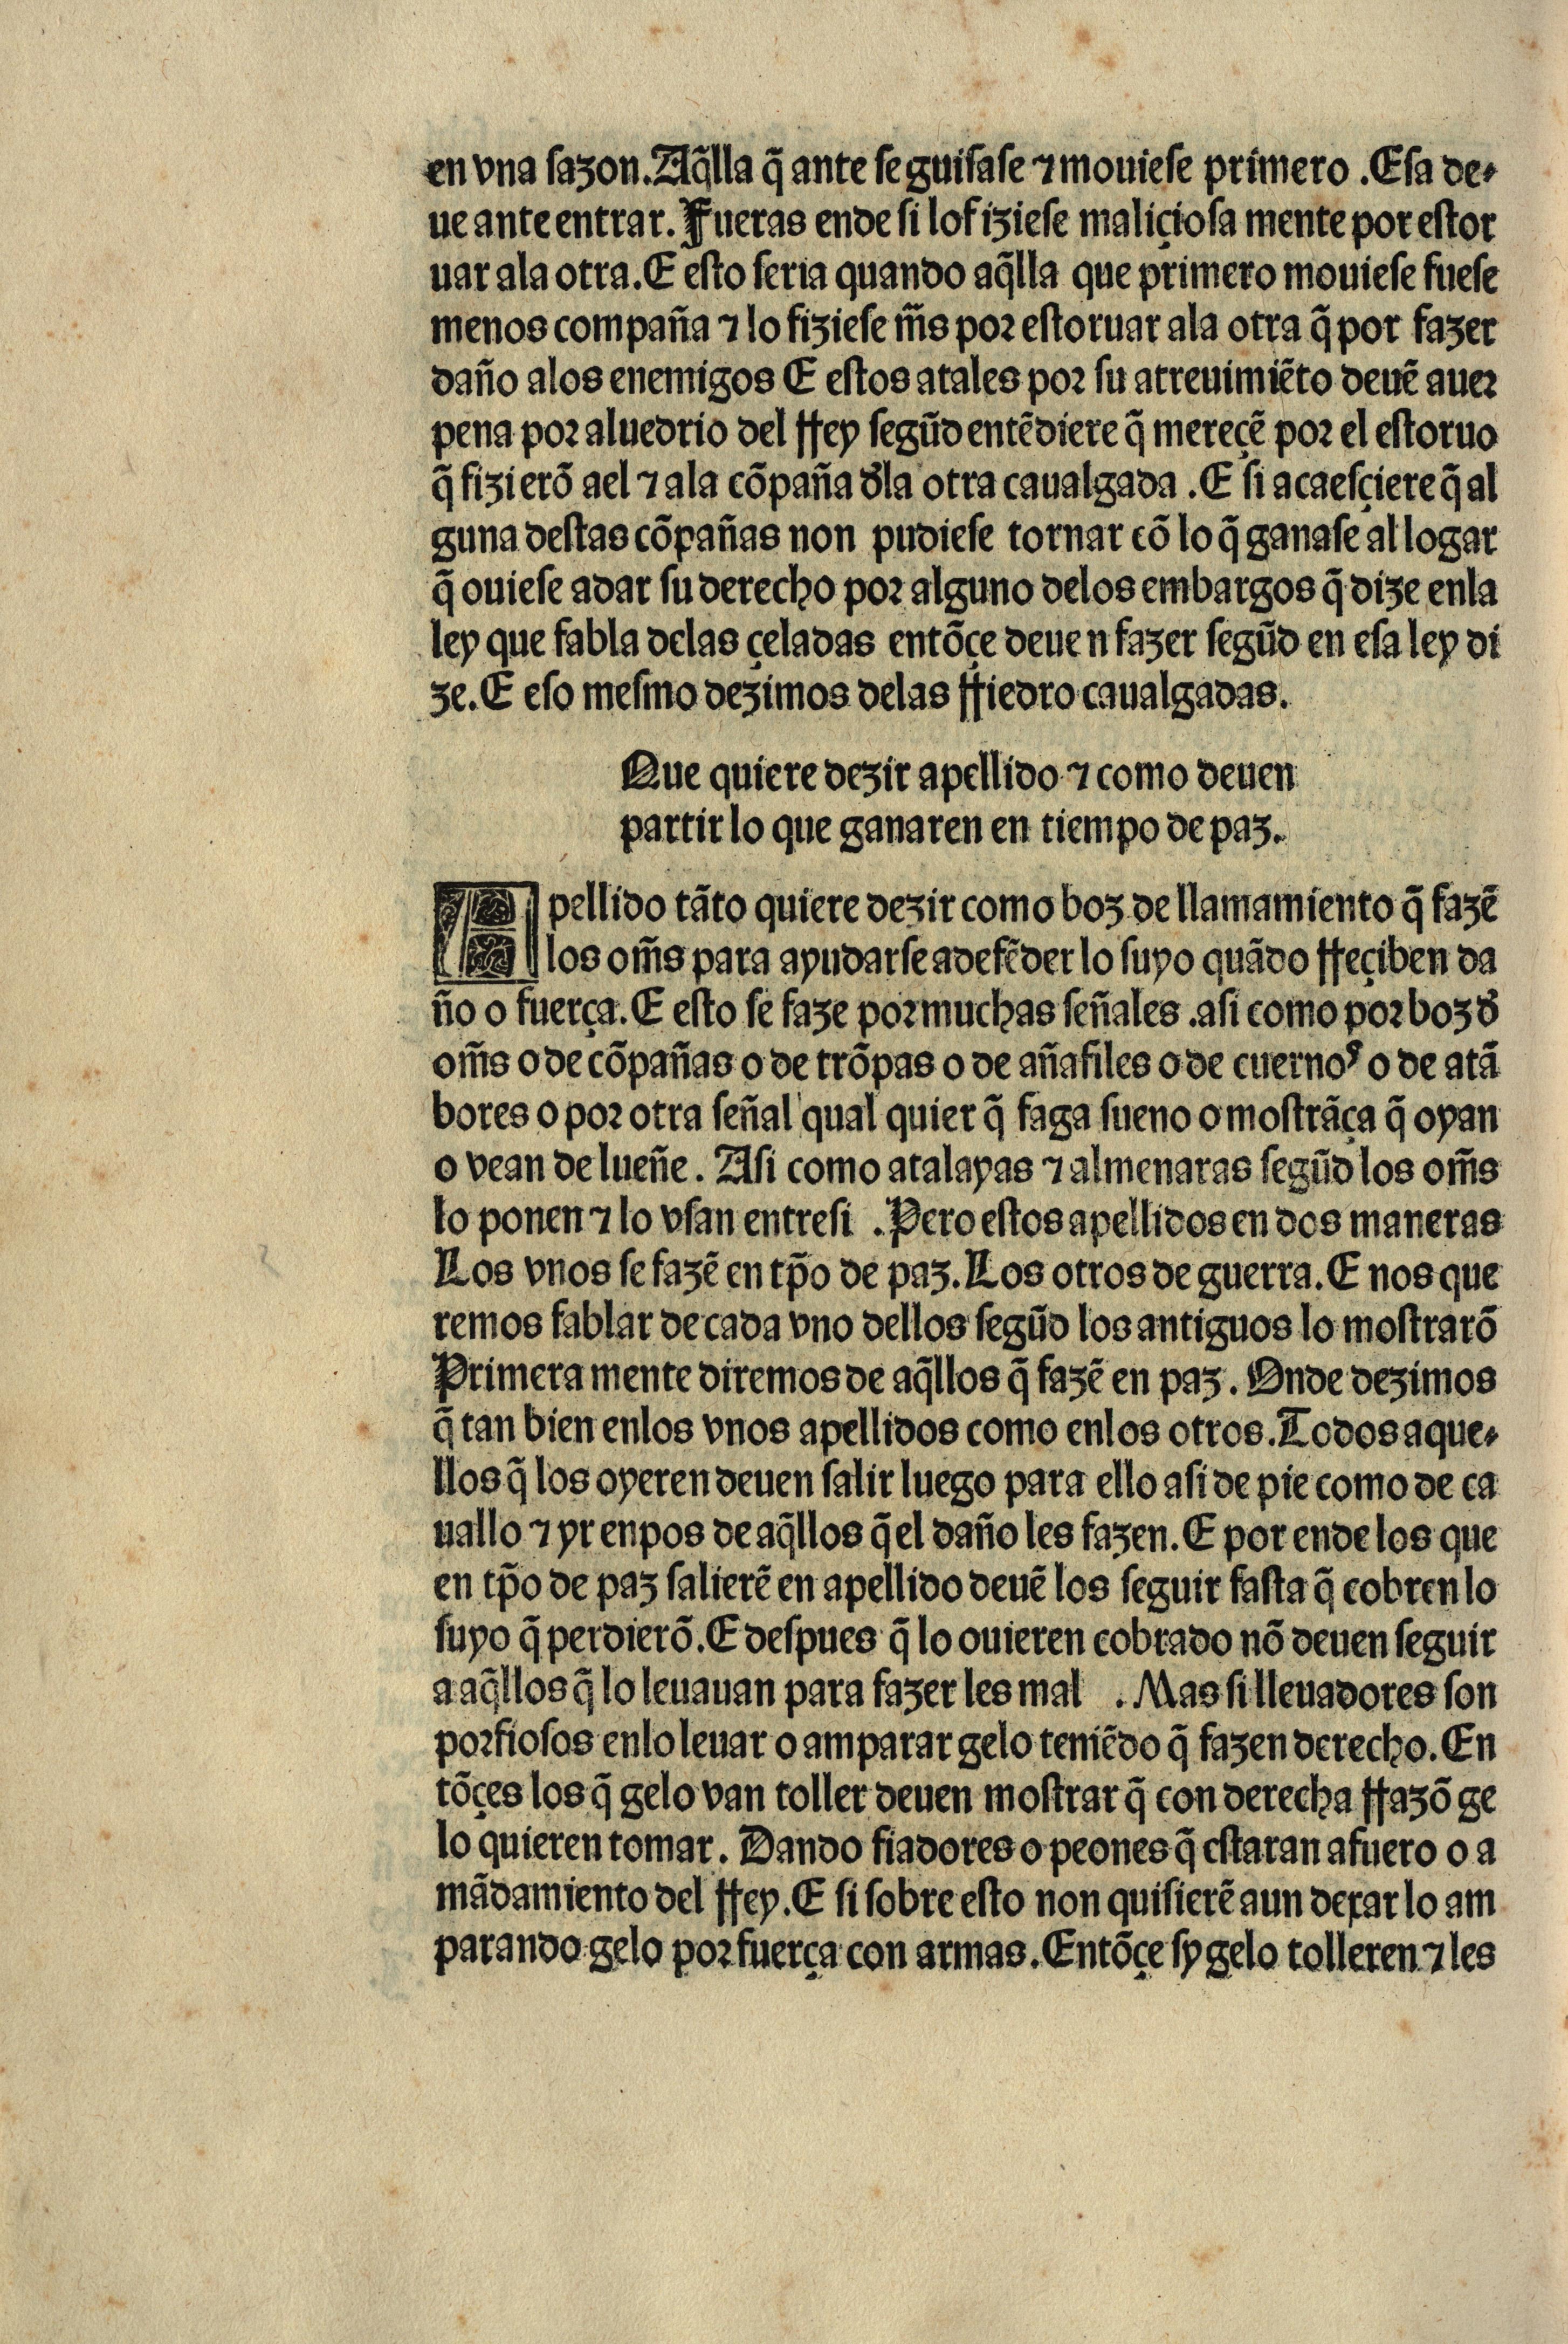 en vna sazon. Aq̃lla q̃ ante se guisase ⁊ mouiese primero .Esa de-
ue ante entrar. Fueras ende si lo fiziese maliçiosa mente por estor
uar ala otra. E esto seria quando aq̃lla que primero mouiese fuese
menos compaña ⁊ lo fiziese m̃s por estoruar ala otra q̃ por fazer
daño alos enemigos E estos atales por su atreuimiẽto deuẽ auer
pena por aluedrio del rrey segũd entẽdiere q̃ mereçẽ por el estoruo
q̃ fizierõ ael ⁊ ala cõpaña d̃la otra caualgada .E si acaesçiere q̃ al
guna destas cõpañas non pudiese tornar cõ lo q̃ ganase al logar
q̃ ouiese adar su derecho por alguno delos embargos q̃ dize enla
ley que fabla delas çeladas entõçe deuen fazer segũd en esa ley di
ze. E eso mesmo dezimos delas rriedro caualgadas.
Que quiere dezir apellido ⁊ como deuen
partir lo que ganaren en tiempo de paz.
Apellido tãto quiere dezir como boz de llamamiento q̃ fazẽ
los om̃s para ayudarse adefẽder lo suyo quãdo rreçiben da
ño o fuerça. E esto se faze por muchas señales .asi como por boz d̃
om̃s o de cõpañas o de trõpas o de añafiles o de cuernos o de atã
bores o por otra señal qual quier q̃ faga sueno o mostrãça q̃ oyan
o vean de lueñe. Asi como atalayas ⁊ almenaras segũd los om̃s
lo ponen ⁊ lo vsan entresi .Pero estos apellidos en dos maneras
Los vnos se fazẽ en tp̃o de paz. Los otros de guerra. E nos que
remos fablar de cada vno dellos segũd los antiguos lo mostrarõ
Primera mente diremos de aq̃llos q̃ fazẽ en paz. Onde dezimos
q̃ tan bien enlos vnos apellidos como enlos otros. Todos aque-
llos q̃ los oyeren deuen salir luego para ello asi de pie como de ca
uallo ⁊ yr enpos de aq̃llos q̃ el daño les fazen. E por ende los que
en tp̃o de paz salierẽ en apellido deuẽ los seguir fasta q̃ cobren lo
suyo q̃ perdierõ. E despues q̃ lo ouieren cobrado nõ deuen seguir
a aq̃llos q̃ lo leuauan para fazer les mal . Mas si lleuadores son
porfiosos enlo leuar o amparar gelo teniẽdo q̃ fazen derecho. En
tõçes los q̃ gelo van toller deuen mostrar q̃ con derecha rrazõ ge
lo quieren tomar. Dando fiadores o peones q̃ estaran afuero o a
mãdamiento del rrey. E si sobre esto non quisierẽ aun dexar lo am
parando gelo por fuerça con armas. Entõçe sy gelo tolleren ⁊ les